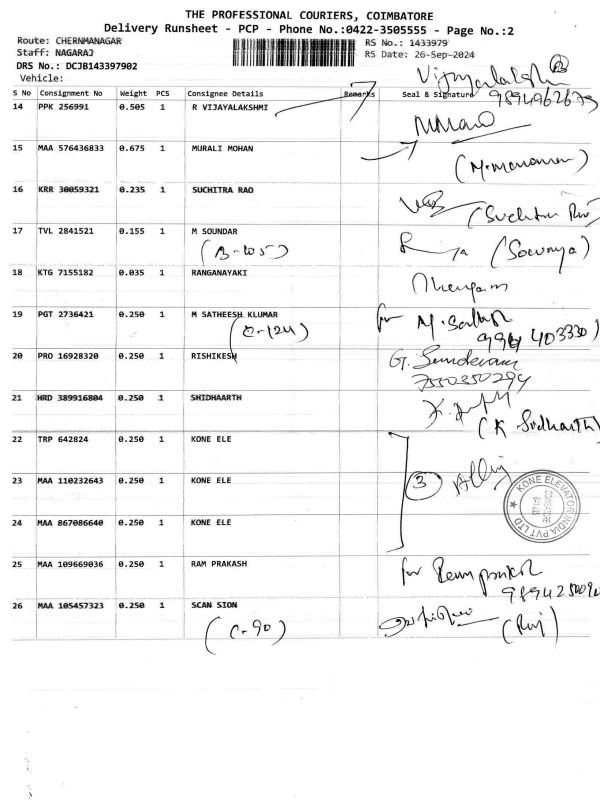 THE PROFESSIONAL COURIERS, COIMBATORE
Delivery Runsheet - PCP - Phone No.:0422-3505555 - Page No.:2
Route: CHERNMANAGAR RS No.: 1433979
Staff: NAGARAJ RS Date: 26-Sep-2024
DRS No.: DCJB143397902
Vehicle:
S No Consignment No Weight PCS Consignee Details Remarks Seal & Signature
14 PPK 256991 0.505 1 R VIJAYALAKSHMI
15 MAA 576436833 0.675 1 MURALI MOHAN
16 KRR 30059321 0.235 1 SUCHITRA RAO
17 TVL 2841521 0.155 1 M SOUNDAR (Sowmya)
18 KTG 7155182 0.035 1 RANGANAYAKI
19 PGT 2736421 0.250 1 M SATHEESH KLUMAR for M. Satheesh
(C-124)
20 PRO 16928320 0.250 1 RISHIKESH G. Sundevam
7550350294
21 HRD 389916804 0.250 1 SHIDHAARTH
(K Sidharth)
22 TRP 642824 0.250 1 KONE ELE
23 MAA 110232643 0.250 1 KONE ELE 3
KONE ELEVATOR INDIA PVT LTD
24 MAA 867086640 0.250 1 KONE ELE
25 MAA 109669036 0.250 1 RAM PRAKASH for Ramprakash
26 MAA 105457323 0.250 1 SCAN SION (Raj)
(C-90)